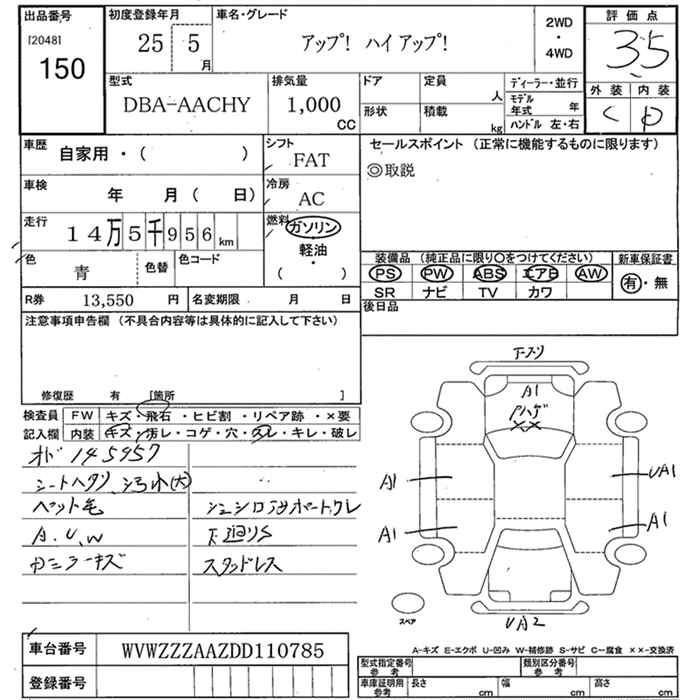 出品番号
[2048]
150
初度登録年月
25 5
月
車名・グレード
アップ! ハイ アップ!
2WD
・
4WD
評価点
3.5
外装 内装
C D
型式
DBA-AACHY
排気量
1,000
CC
ドア
形状
定員
人
積載
kg
ディーラー・並行
モデル
年式 年
ハンドル 左・右
車歴
自家用・( )
シフト
FAT
車検
年 月 ( 日)
冷房
AC
走行
14万5千956 km
燃料
ガソリン
軽油
・
( )
色
青
色替
色コード
R券
13,550 円
名変期限 月 日
セールスポイント (正常に機能するものに限ります)
◎取説
装備品 (純正品に限り〇をつけてください)
PS PW ABS エアB AW
SR ナビ TV カワ
新車保証書
有・無
後日品
注意事項申告欄 (不具合内容等は具体的に記入して下さい)
修復歴 有 [箇所 ]
検査員
記入欄
FW キズ・飛石・ヒビ割・リペア跡・×要
内装 キズ・汚レ・コゲ・穴・スレ・キレ・破レ
オド 145957
シートヘタリ、汚れ(大)
ペット毛
A.U.W
下廻りS
スタッドレス
A1
XX
A1
A1
UA1
A1
UA2
スペア
A-キズ E-エクボ U-凹み W-補修跡 S-サビ C-腐食 ××-交換済
車台番号
WVWZZZAAZDD110785
登録番号
型式指定番号
参考
類別区分番号
参考
車庫証明用
参考
長さ cm
幅 cm
高さ cm